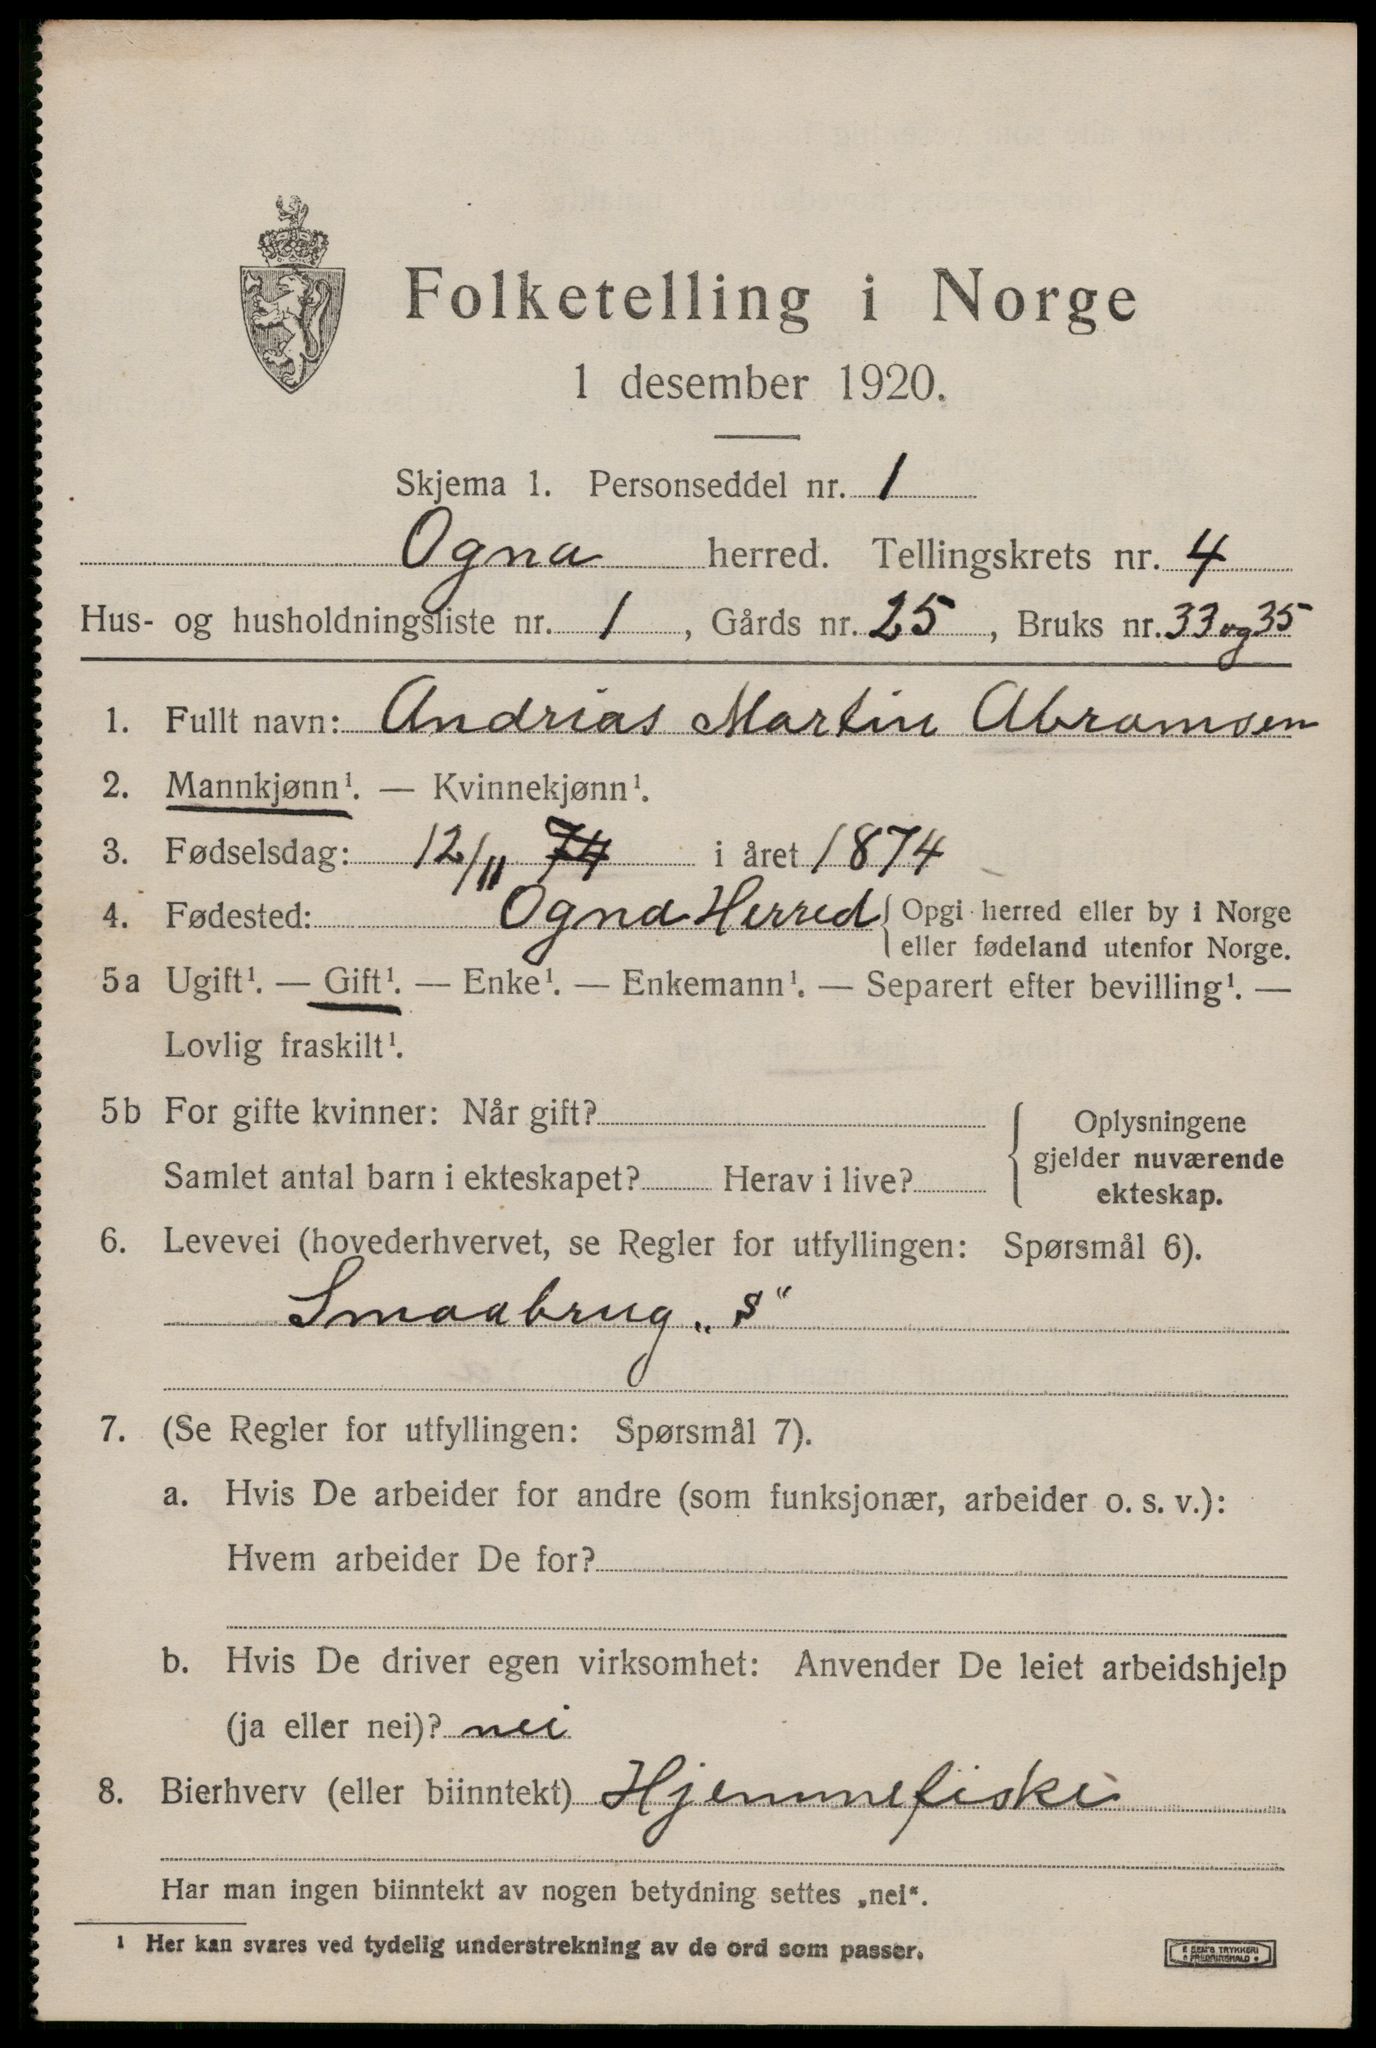 Folketelling i Norge
1 desember 1920.
Skjema 1. Personseddel nr. 1
Ogna herred. Tellingskrets nr. 4
Hus- og husholdningsliste nr. 1, Gårds nr. 25, Bruks nr. 33 og 35
1. Fullt navn: Andrias Martin Abramsen
2. Mannkjønn¹. — Kvinnekjønn¹.
3. Fødselsdag: 12/11 74 i året 1874
4. Fødested: Ogna Herred { Opgi herred eller by i Norge
eller fødeland utenfor Norge.
5a Ugift¹. — Gift¹. — Enke¹. — Enkemann¹. — Separert efter bevilling¹. —
Lovlig fraskilt¹.
5b For gifte kvinner: Når gift?
Samlet antal barn i ekteskapet? Herav i live?
{ Oplysningene
gjelder nuværende
ekteskap.
6. Levevei (hovederhvervet, se Regler for utfyllingen: Spørsmål 6).
Smaabrug „s“
7. (Se Regler for utfyllingen: Spørsmål 7).
a. Hvis De arbeider for andre (som funksjonær, arbeider o. s. v.):
Hvem arbeider De for?
b. Hvis De driver egen virksomhet: Anvender De leiet arbeidshjelp
(ja eller nei)? nei
8. Bierhverv (eller biinntekt) Hjemmefiske
Har man ingen biinntekt av nogen betydning settes „nei“.
¹ Her kan svares ved tydelig understrekning av de ord som passer.
E SEM'S TRYKKERI
FREDRIKSHALD